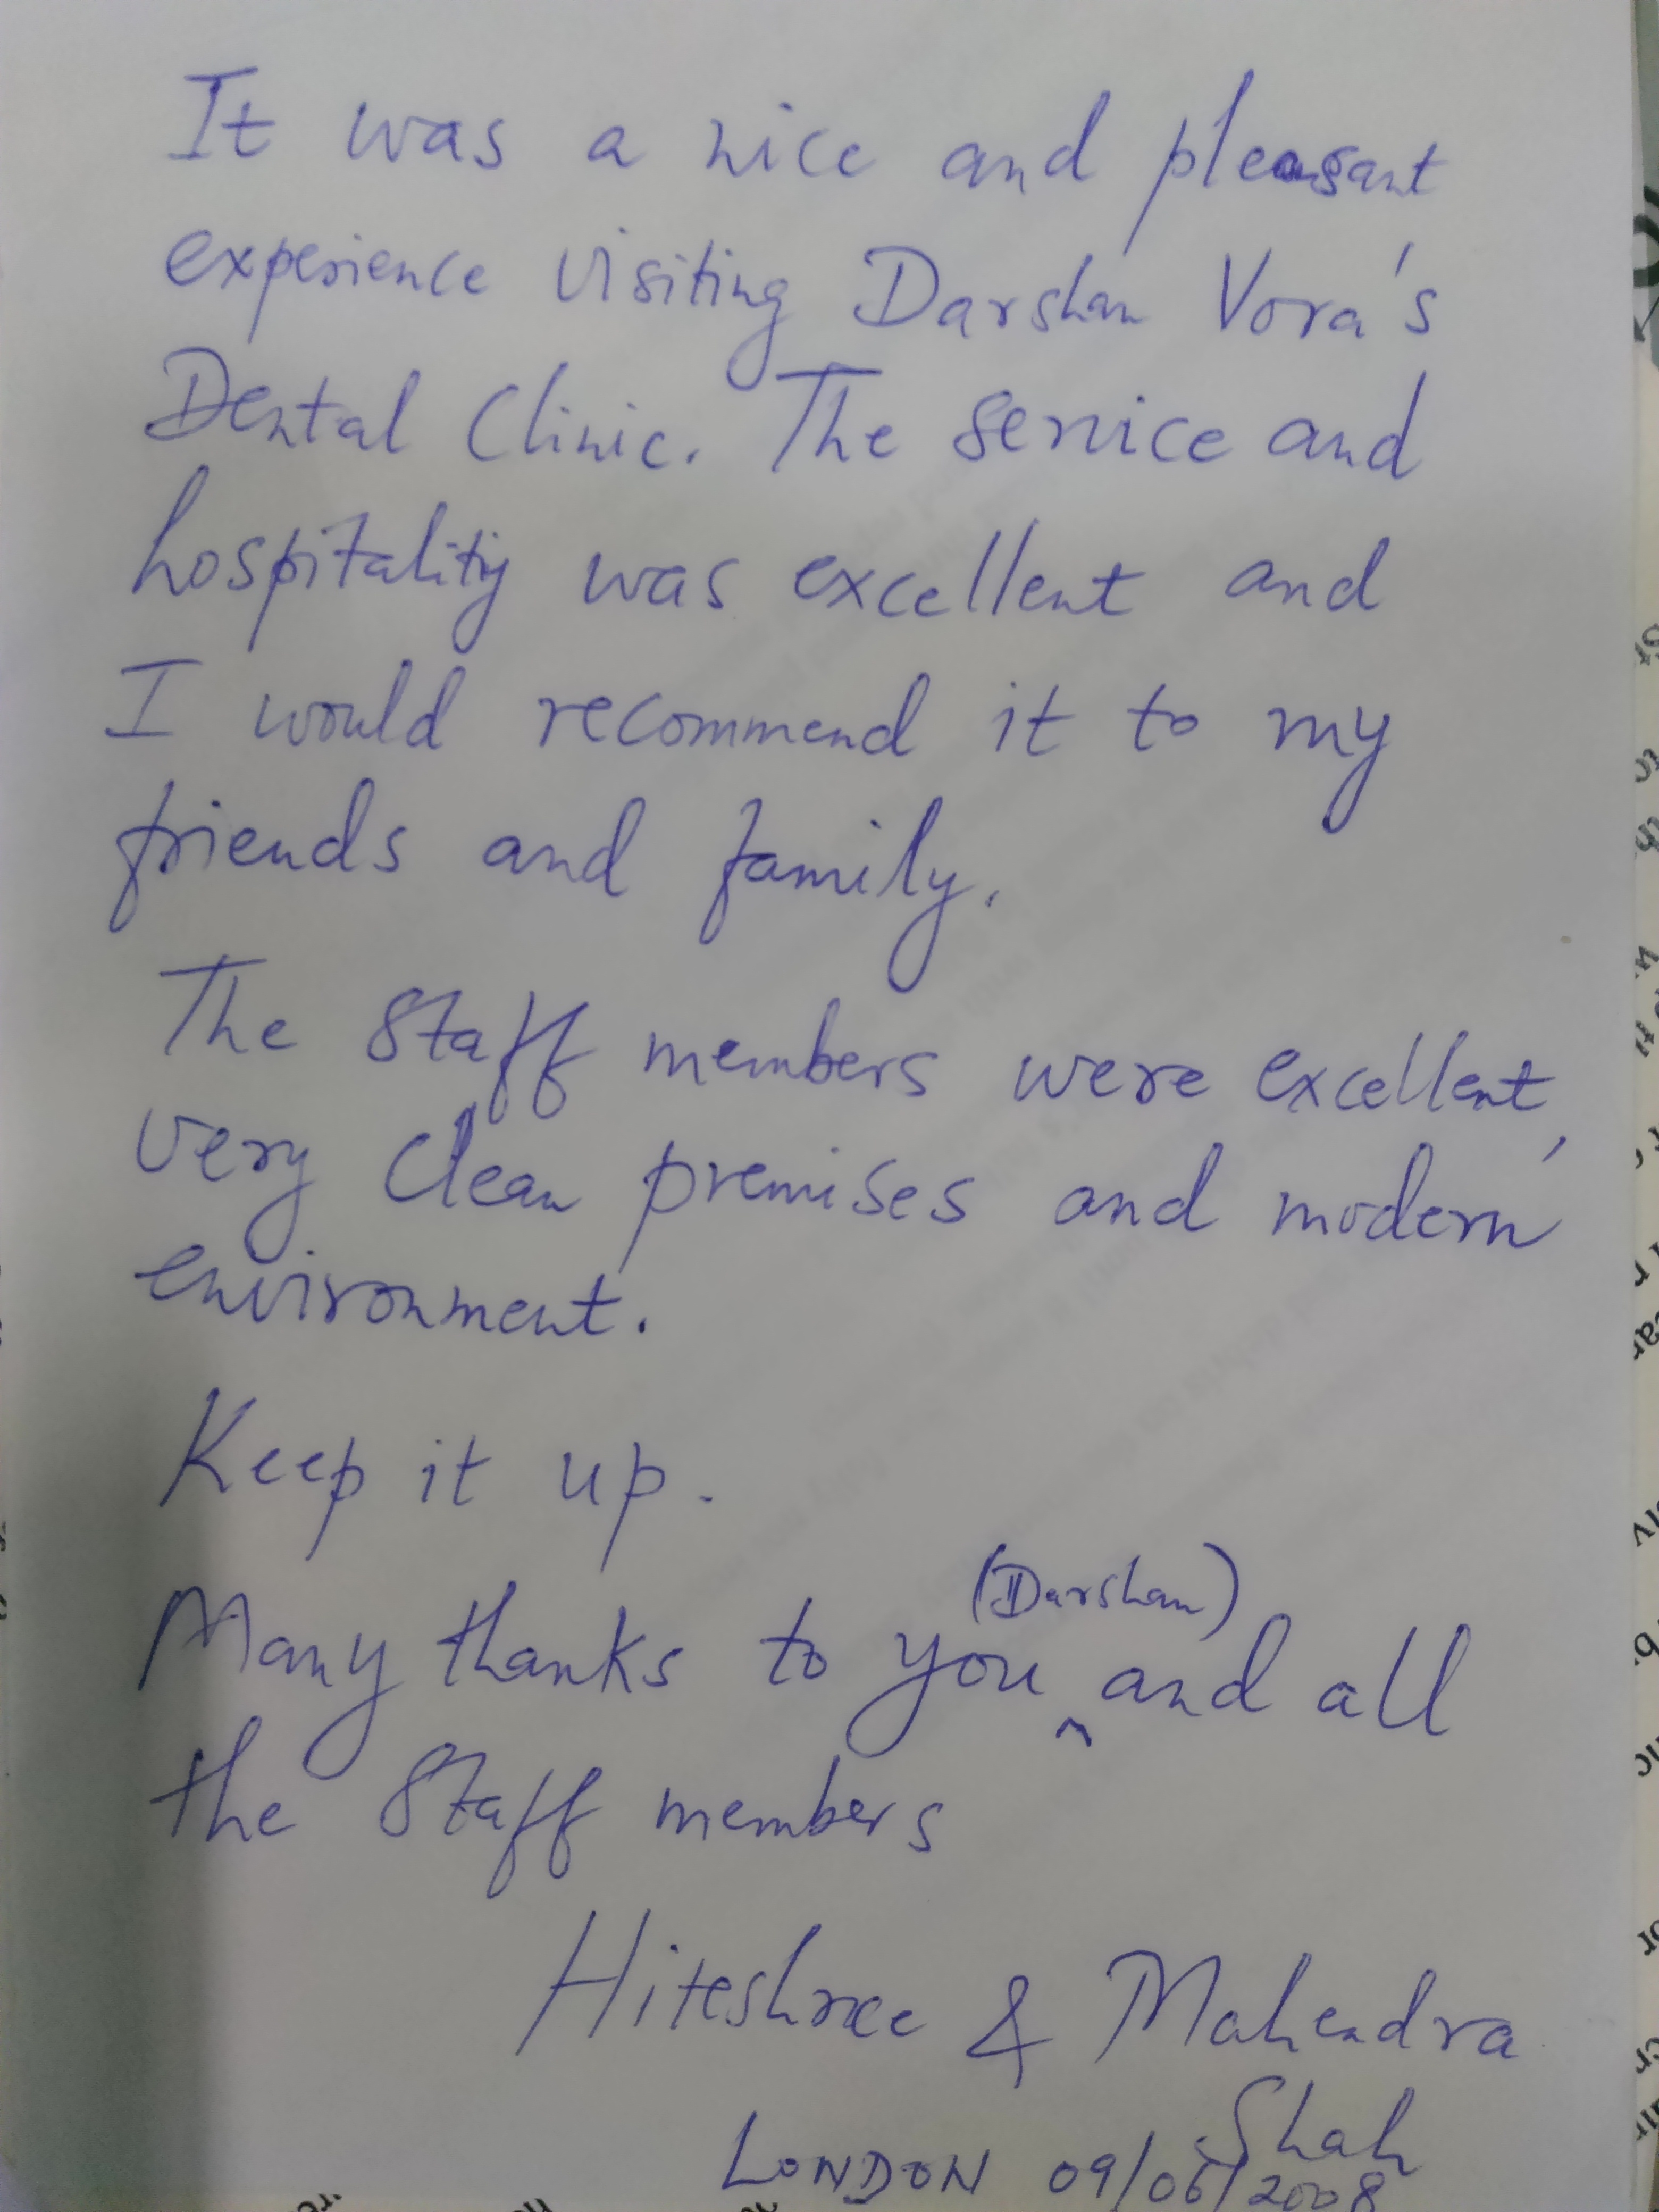 It was a nice and pleasant
experience visiting Darshan Vora's
Dental Clinic. The service and
hospitality was excellent and
I would recommend it to my
friends and family.
The staff members were excellent,
very clean premises and modern
environment.
Keep it up.
(Darshan)
Many thanks to you ^ and all
the staff members
Hiteshree & Mahendra
Shah
LONDON 09/06/2008